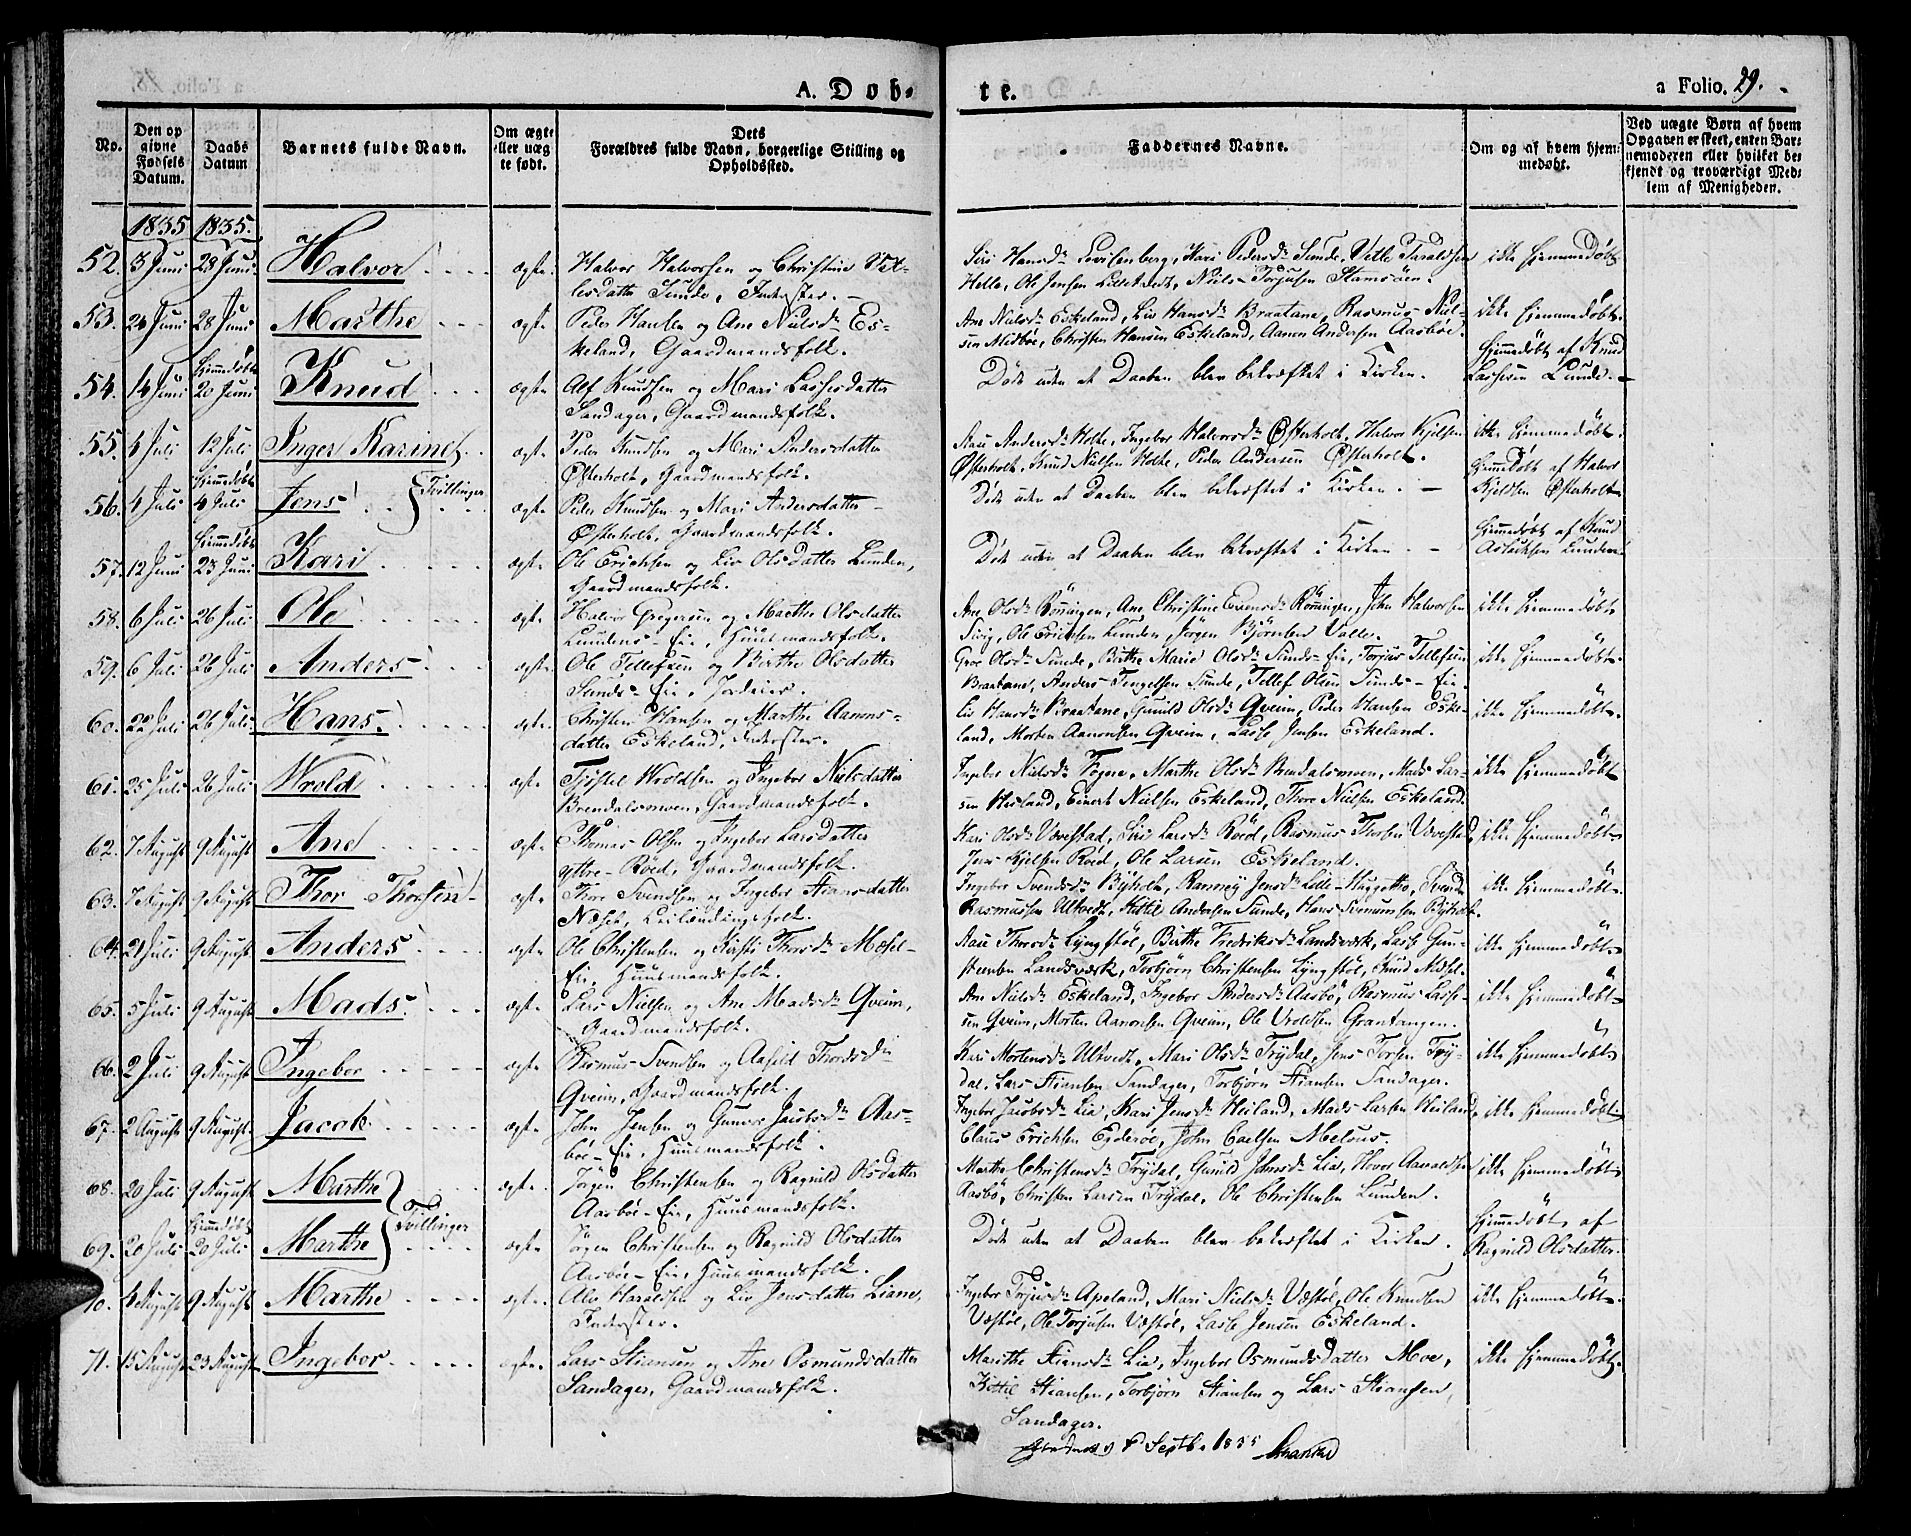 A. Döb-
te.
a Folio. 29.
No.
Den op givne Fødsels Datum.
Daabs Datum
Barnets fulde Navn.
Om ægte eller uægte født.
Dets Forældres fulde Navn, borgerlige Stilling og Opholdssted.
Faddernes Navne.
Om og af hvem hjemmedøbt.
Ved uægte Børn af hvem Opgaven er skeet, enten Barnemoderen eller hvilket bekjendt og troværdigt Medlem af Menigheden.
1835 1835.
52. 3 Juni 28 Juni Halvor ægte Halvor Halvorsen og Christine Vet-
lesdatter Sunde, Inderster.
Siri Hansdr. Kari Pedersdr. Sunde, Vetle Taraldsen
Helle, Ole Jensen Lilletvedt, Niels Torjusen Stamsöen.
ikke hjemmedöbt
53. 24 Juni 28 Juni Marthe ægte Peder Hansen og Ane Nielsdr. Es-
keland, Gaardmandsfolk.
Ane Nielsdr. Eskeland, Liv Hansdr. Braatane, Rasmus Niel-
sen Midböe, Christen Hansen Eskeland, Aanon Andersen Aasböe.
ikke hjemmedöbt.
54. 14 Juni hjemmedöbt 20 Juni Knud ægte Alf Knudsen og Mari Lassesdatter
Sandager, Gaardmandsfolk.
Döde uden at Daaben blev bekræftet i Kirken.
hjemmedöbt af Knud
Lassesen Lunde.
55. 4 Juli 12 Juli Inger Karine ægte Peder Knudsen og Mari Andersdatter
Österholt, Gaardmandsfolk.
Aase Andersdr. Holte, Ingebor Halvorsdr. Österholt, Halvor Kjelsen
Österholt, Knud Nielsen Holte, Peder Andersen Österholt.
ikke hjemmedöbt.
Tvillinger
56. 4 Juli hjemmedöbt 4 Juli Jens ægte Peder Knudsen og Mari Andersdatter
Österholt, Gaardmandsfolk.
Döde uden at Daaben blev bekræftet i Kirken.
hjemmedöbt af Halvor
Kjeldsen Österholt
57. 12 Juni hjemmedöbt 23 Juni Kari ægte Ole Erichsen og Liv Olsdatter Lunden,
Gaardmandsfolk.
Döde uden at Daaben blev bekræftet i Kirken.
hjemmedöbt af Knud
Aslaksen Lunden
58. 6 Juli 26 Juli Ole ægte Halvor Gregersen og Marthe Olsdatter
Lundens Eie, Huusmandsfolk.
Ane Olsdr. Rönningen, Ane Christine Evensdr. Rönningen, John Halvorsen
Ole Erichsen Lunden, Jörgen Björnsen Valle.
ikke hjemmedöbt
59. 6 Juli 26 Juli Anders ægte Ole Tellefsen og Birthe Olsdatter
Sunds-Eie, Jordeier.
Groe Olsdr. Sunde, Birthe Marie Olsdr. Sunds-Eie, Torjus Tellefsen
Braatane, Anders Tengelsen Sunde, Tellef Olsen Sunds-Eie.
ikke hjemmedöbt.
60. 22 Juli 26 Juli Hans ægte Christen Hansen og Marthe Aanons-
datter Eskeland, Inderster.
Liv Hansdr. Braatane, Gunild Olsdr. Qveim, Peder Hansen Eske-
land, Morten Aanonsen Qveim, Lasse Jensen Eskeland.
ikke hjemmedöbt.
61. 25 Juli 26 Juli Wrold ægte Tjöstel Wroldsen og Ingebor Nielsdatter
Brendalsmoen, Gaardmandsfolk.
Ingebor Nielsdr. Fogne, Marthe Olsdr. Brendalsmoen, Mads Lar-
sen Heiland, Einert Nielsen Eskeland, Thore Nielsen Eskeland.
ikke hjemmedöbt
62. 7 August 9 August Ane ægte Thomas Olsen og Ingebor Larsdatter
Yttre-Röed, Gaardmandsfolk.
Kari Olsdr. Uvestad, Siri Larsdr. Röed, Rasmus Thorsen Uvestad,
Jens Kjelsen Röed, Ole Larsen Eskeland.
ikke hjemmedöbt
63. 7 August 9 August Thor Thorsen ægte Thor Svendsen og Ingebor Stiansdatter
Næset, Leilændingsfolk.
Ingebor Svendsdr. Byholt, Ranneg Jensdr. Lille-Haggetho, Svend
Rasmussen Ultvedt, Kittil Andersen Sunde, Hans Byholt.
ikke hjemmedöbt.
64. 21 Juli 9 August Anders ægte Ole Christensen og Kirsti Thorsdr. Mæsel-
Eie, Huusmandsfolk.
Aase Thorsdr. Lyngstöl, Birthe Fredriksdr. Landsværk, Lasse Gun-
stensen Landsværk, Torbjörn Christensen Lyngstöl, Knud Mæsel.
ikke hjemmedöbt
65. 5 Juli 9 August Mads ægte Lars Nielsen og Ane Madsdr. Qveim,
Gaardmandsfolk.
Ane Nielsdr. Eskeland, Ingebor Andersdr. Aasbö, Rasmus Lasse-
sen Qveim, Morten Aanonsen Qveim, Ole Uroldsen Grantangen.
ikke hjemmedöbt
66. 2 Juli 9 August Ingebor ægte Rasmus Svendsen og Aasild Thordsdr.
Qveim, Gaardmandsfolk.
Kari Mortensdr. Ultvedt, Mari Olsdr. Trydal, Jens Torsen Try-
dal, Lars Stiansen Sandager, Torbjörn Stiansen Sandager.
ikke hjemmedöbt
67. 2 August 9 August Jacob ægte John Jensen og Gunvor Jacobsdr. Aas-
böe-Eie, Huusmandsfolk.
Ingebor Jacobsdr. Lia, Kari Jensdr. Heiland, Mads Larsen Heiland,
Claus Erichsen Egderöe, John Carlsen Melaas.
ikke hjemmedöbt.
68. 20 Juli 9 August Marthe ægte Jörgen Christensen og Ragnild Olsdatter
Aasböe-Eie, Huusmandsfolk.
Marthe Christensdr. Trydal, Gunild Johnsdr. Lia, Hovor Aanaldsen
Aasbö, Christen Larsen Trydal, Ole Christensen Lunden.
ikke hjemmedöbt
Tvillinger
69. 20 Juli hjemmedöbt 20 Juli Marthe ægte Jörgen Christensen og Ragnild Olsdatter
Aasböe-Eie, Huusmandsfolk.
Döde uden at Daaben blev bekræftet i Kirken.
hjemmedöbt af
Ragnild Olsdatter.
70. 4 August 9 August Marthe ægte Alev Haraldsen og Liv Jensdatter Liane,
Inderster.
Ingebor Torjusdr. Apeland, Mari Nielsdr. Væstöl, Ole Knudsen
Væstöl, Ole Torjusen Væstöl, Lasse Jensen Eskeland.
ikke hjemmedöbt.
71. 15 August 23 August Ingebor ægte Lars Stiansen og Ane Osmundsdatter
Sandager, Gaardmandsfolk.
Marithe Stiansdr. Lia, Ingebor Osmundsdatter Moe,
Kittil Stiansen, Torbjörn Stiansen og Lars Stiansen,
Sandager.
ikke hjemmedöbt.
Septbr. 1835